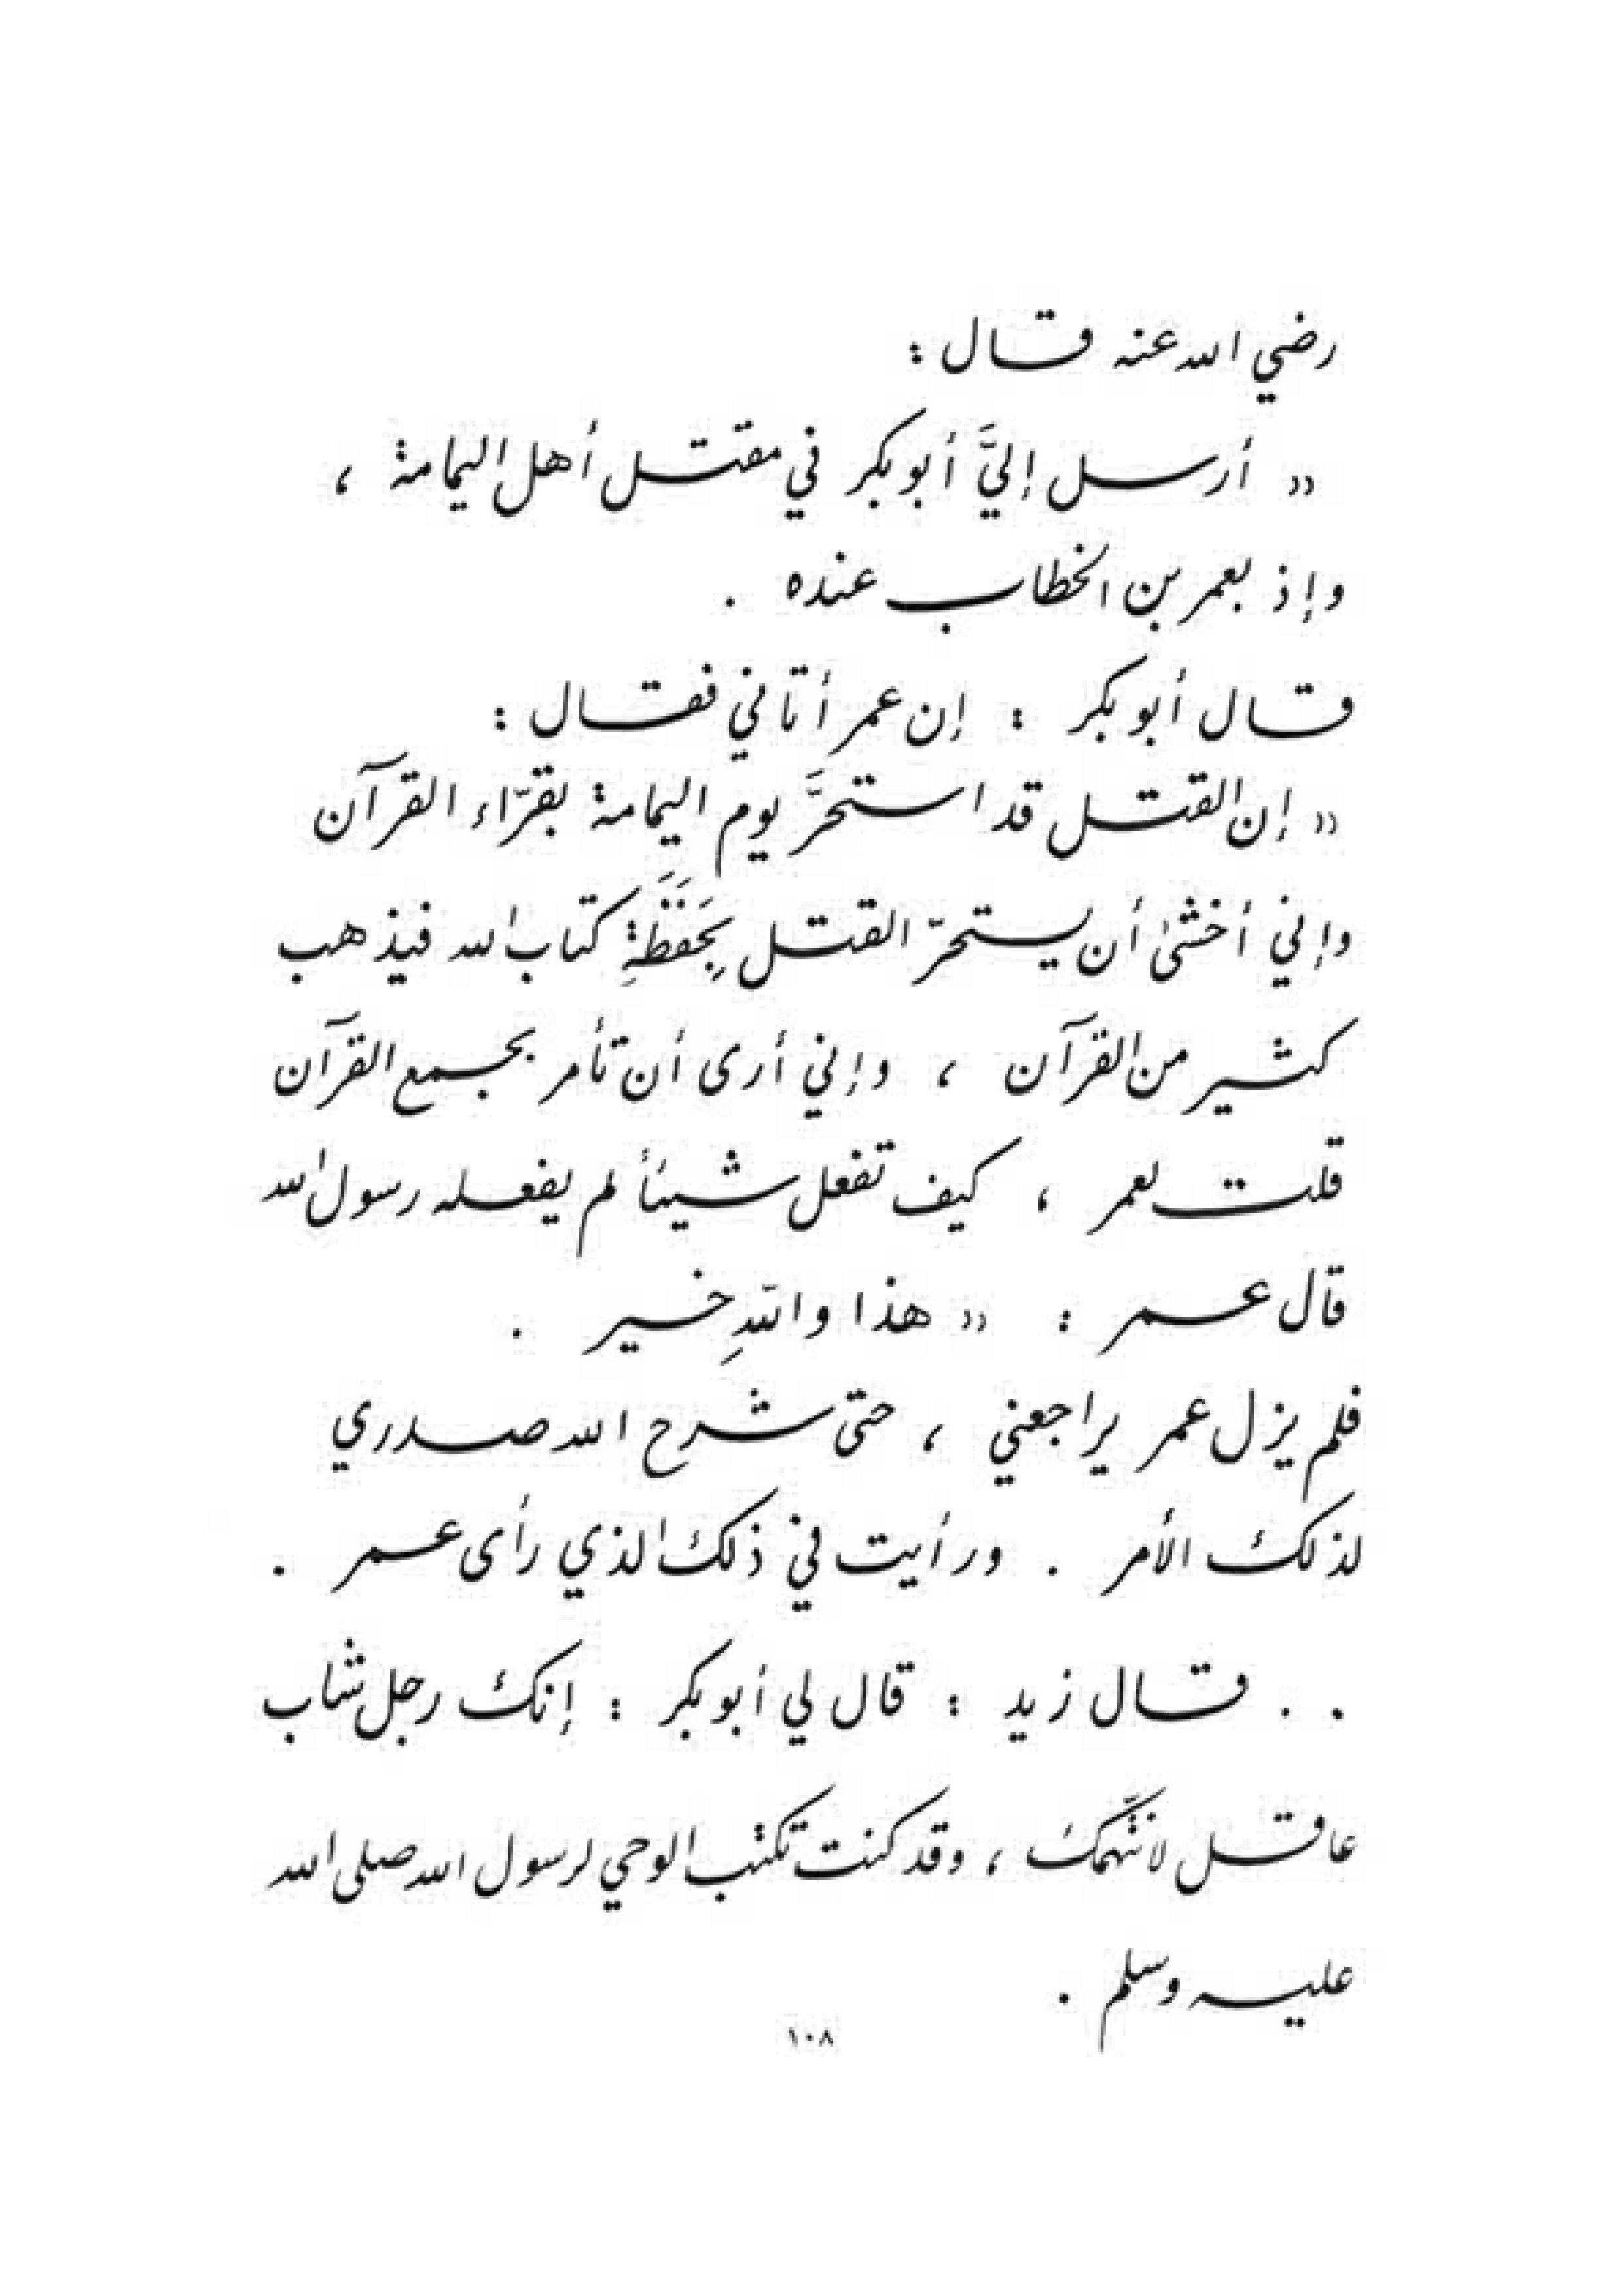 رضي الله عنه قال :
« أرسل إليَّ أبو بكر في مقتل أهل اليمامة ،
وإذ بعمر بن الخطاب عنده .
قال أبو بكر : إن عمر أتاني فقال :
« إن القتل قد استحرَّ يوم اليمامة بقرّاء القرآن
وإني أخشىٰ أن يستحرّ القتل بِحَفَظَةِ كتاب الله فيذهب
كثير من القرآن ، وإني أرى أن تأمر بجمع القرآن
قلت لعمر ، كيف تفعل شيئاً لم يفعله رسول الله
قال عمر : « هذا واللهِ خير .
فلم يزل عمر يراجعني ، حتى شرح الله صدري
لذلك الأمر . ورأيت في ذلك الذي رأى عمر .
. . قال زيد : قال لي أبو بكر : إنك رجل شاب
عاقل لا نتَّهمكُ ، وقد كنت تكتب الوحي لرسول الله صلى الله
عليه وسلم .
١٠٨